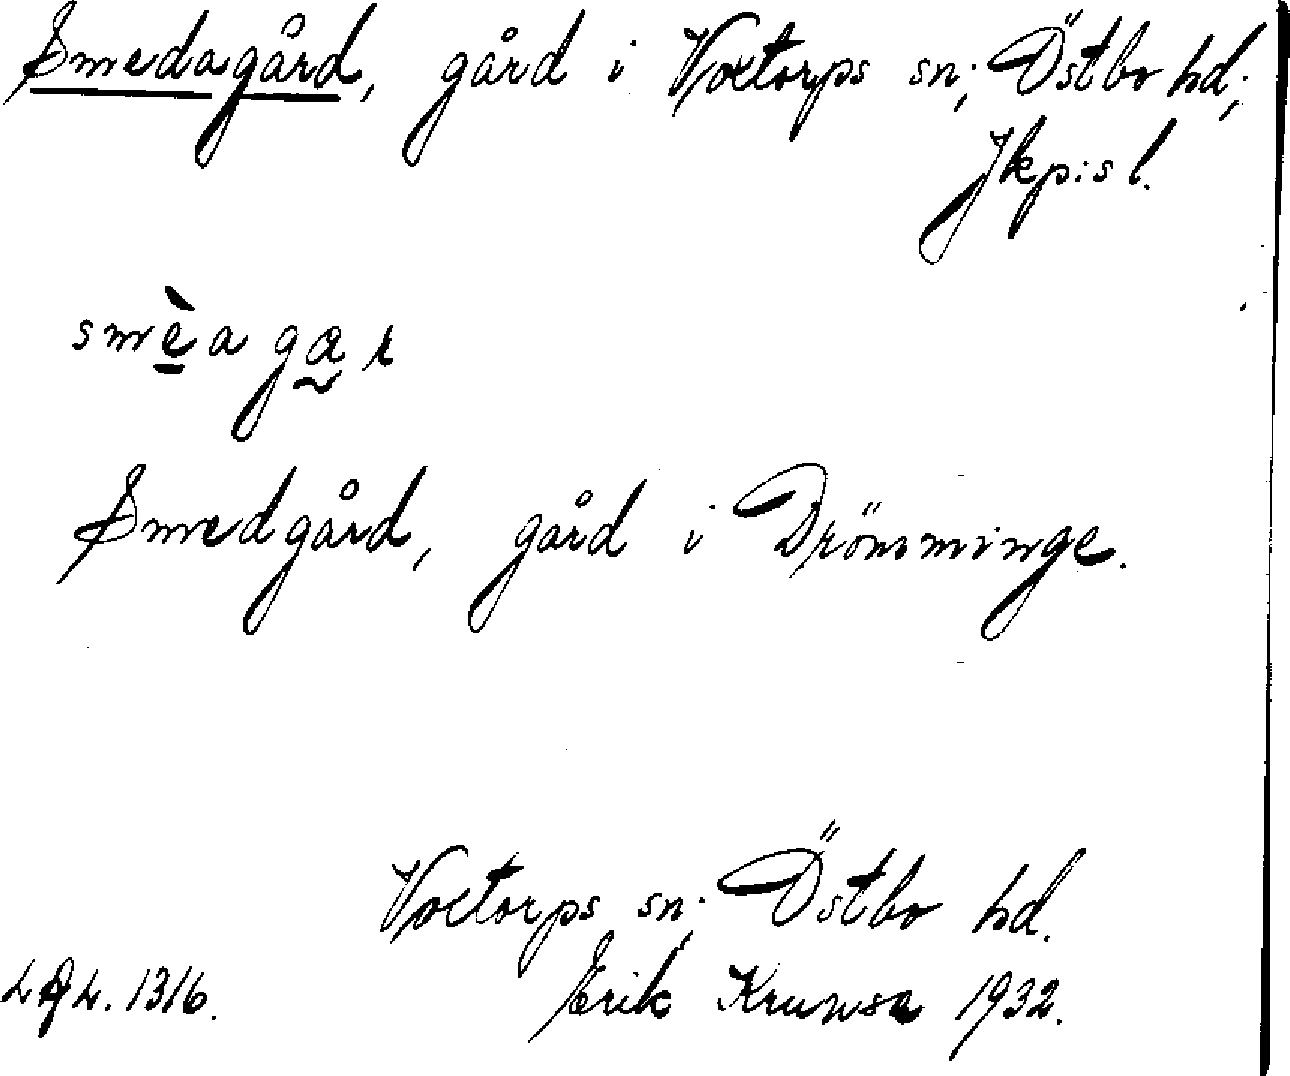 Smedagård, gård i Voxtorps sn; Östbo hd;
Jkp:s l.
smèagar
Smedgård, gård i Drömminge.
Voxtorps sn; Östbo hd.
1316. Erik Krunsa 1932.